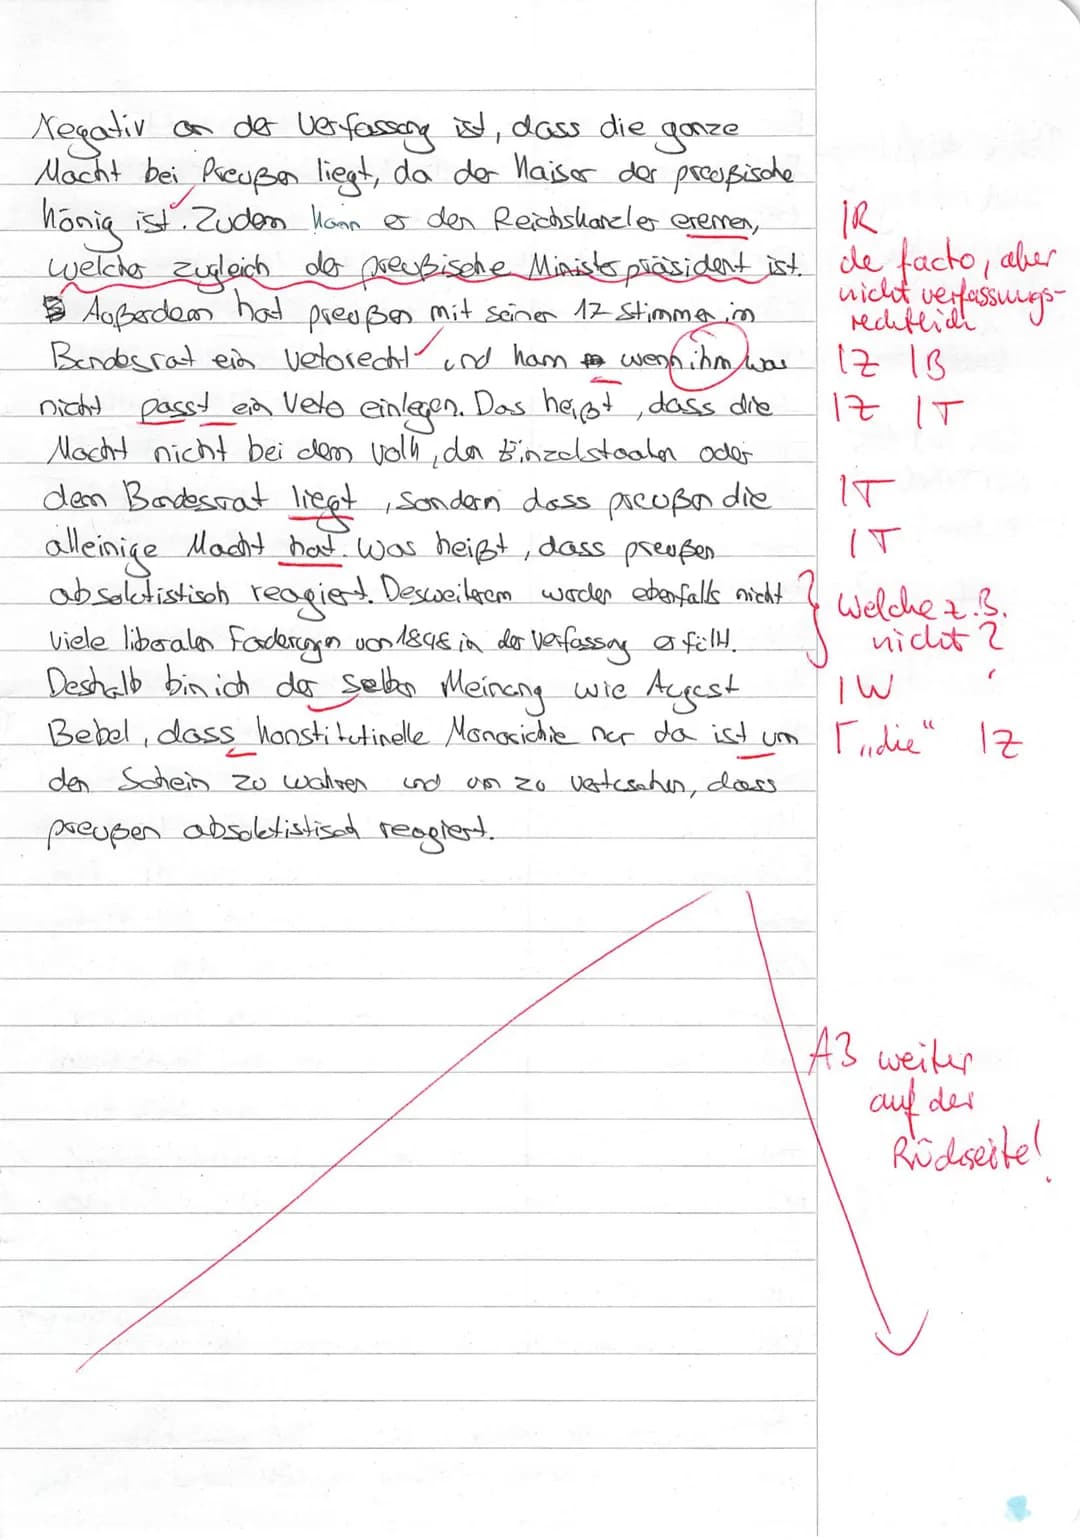 Negativ an der Verfassung ist, dass die ganze
Macht bei Preußen liegt, da der Kaiser der preußische
König ist. Zudem kann er den Reichskanzler erenen, IR
welcher zugleich der preußische Ministerpräsident ist. de facto, aber
nicht verfassungs-
rechtlich
Außerdem hat preußen mit seiner 17 Stimmen im
Bundesrat ein Vetorecht und kann wenn ihm was IZ IB
nicht passt ein Veto einlegen. Das heißt, dass die IZ IT
Macht nicht bei dem Volk, den Einzelstaaten oder
dem Bundesrat liegt, sondern dass preußen die IT
alleinige Macht hat. Was heißt, dass preußen IT
absolutistisch reagiert. Desweiterem werden ebenfalls nicht Welche z.B.
viele liberalen Forderungen von 1848 in der Verfassung erfüllt. nicht?
Deshalb bin ich der selben Meinung wie August IW
Bebel, dass konstitutinelle Monarichie nur da ist um Γ „die“ IZ
den Schein zu wahren und um zu vertuschen, dass
preußen absolutistisch reagiert.
A3 weiter
auf der
Rückseite!